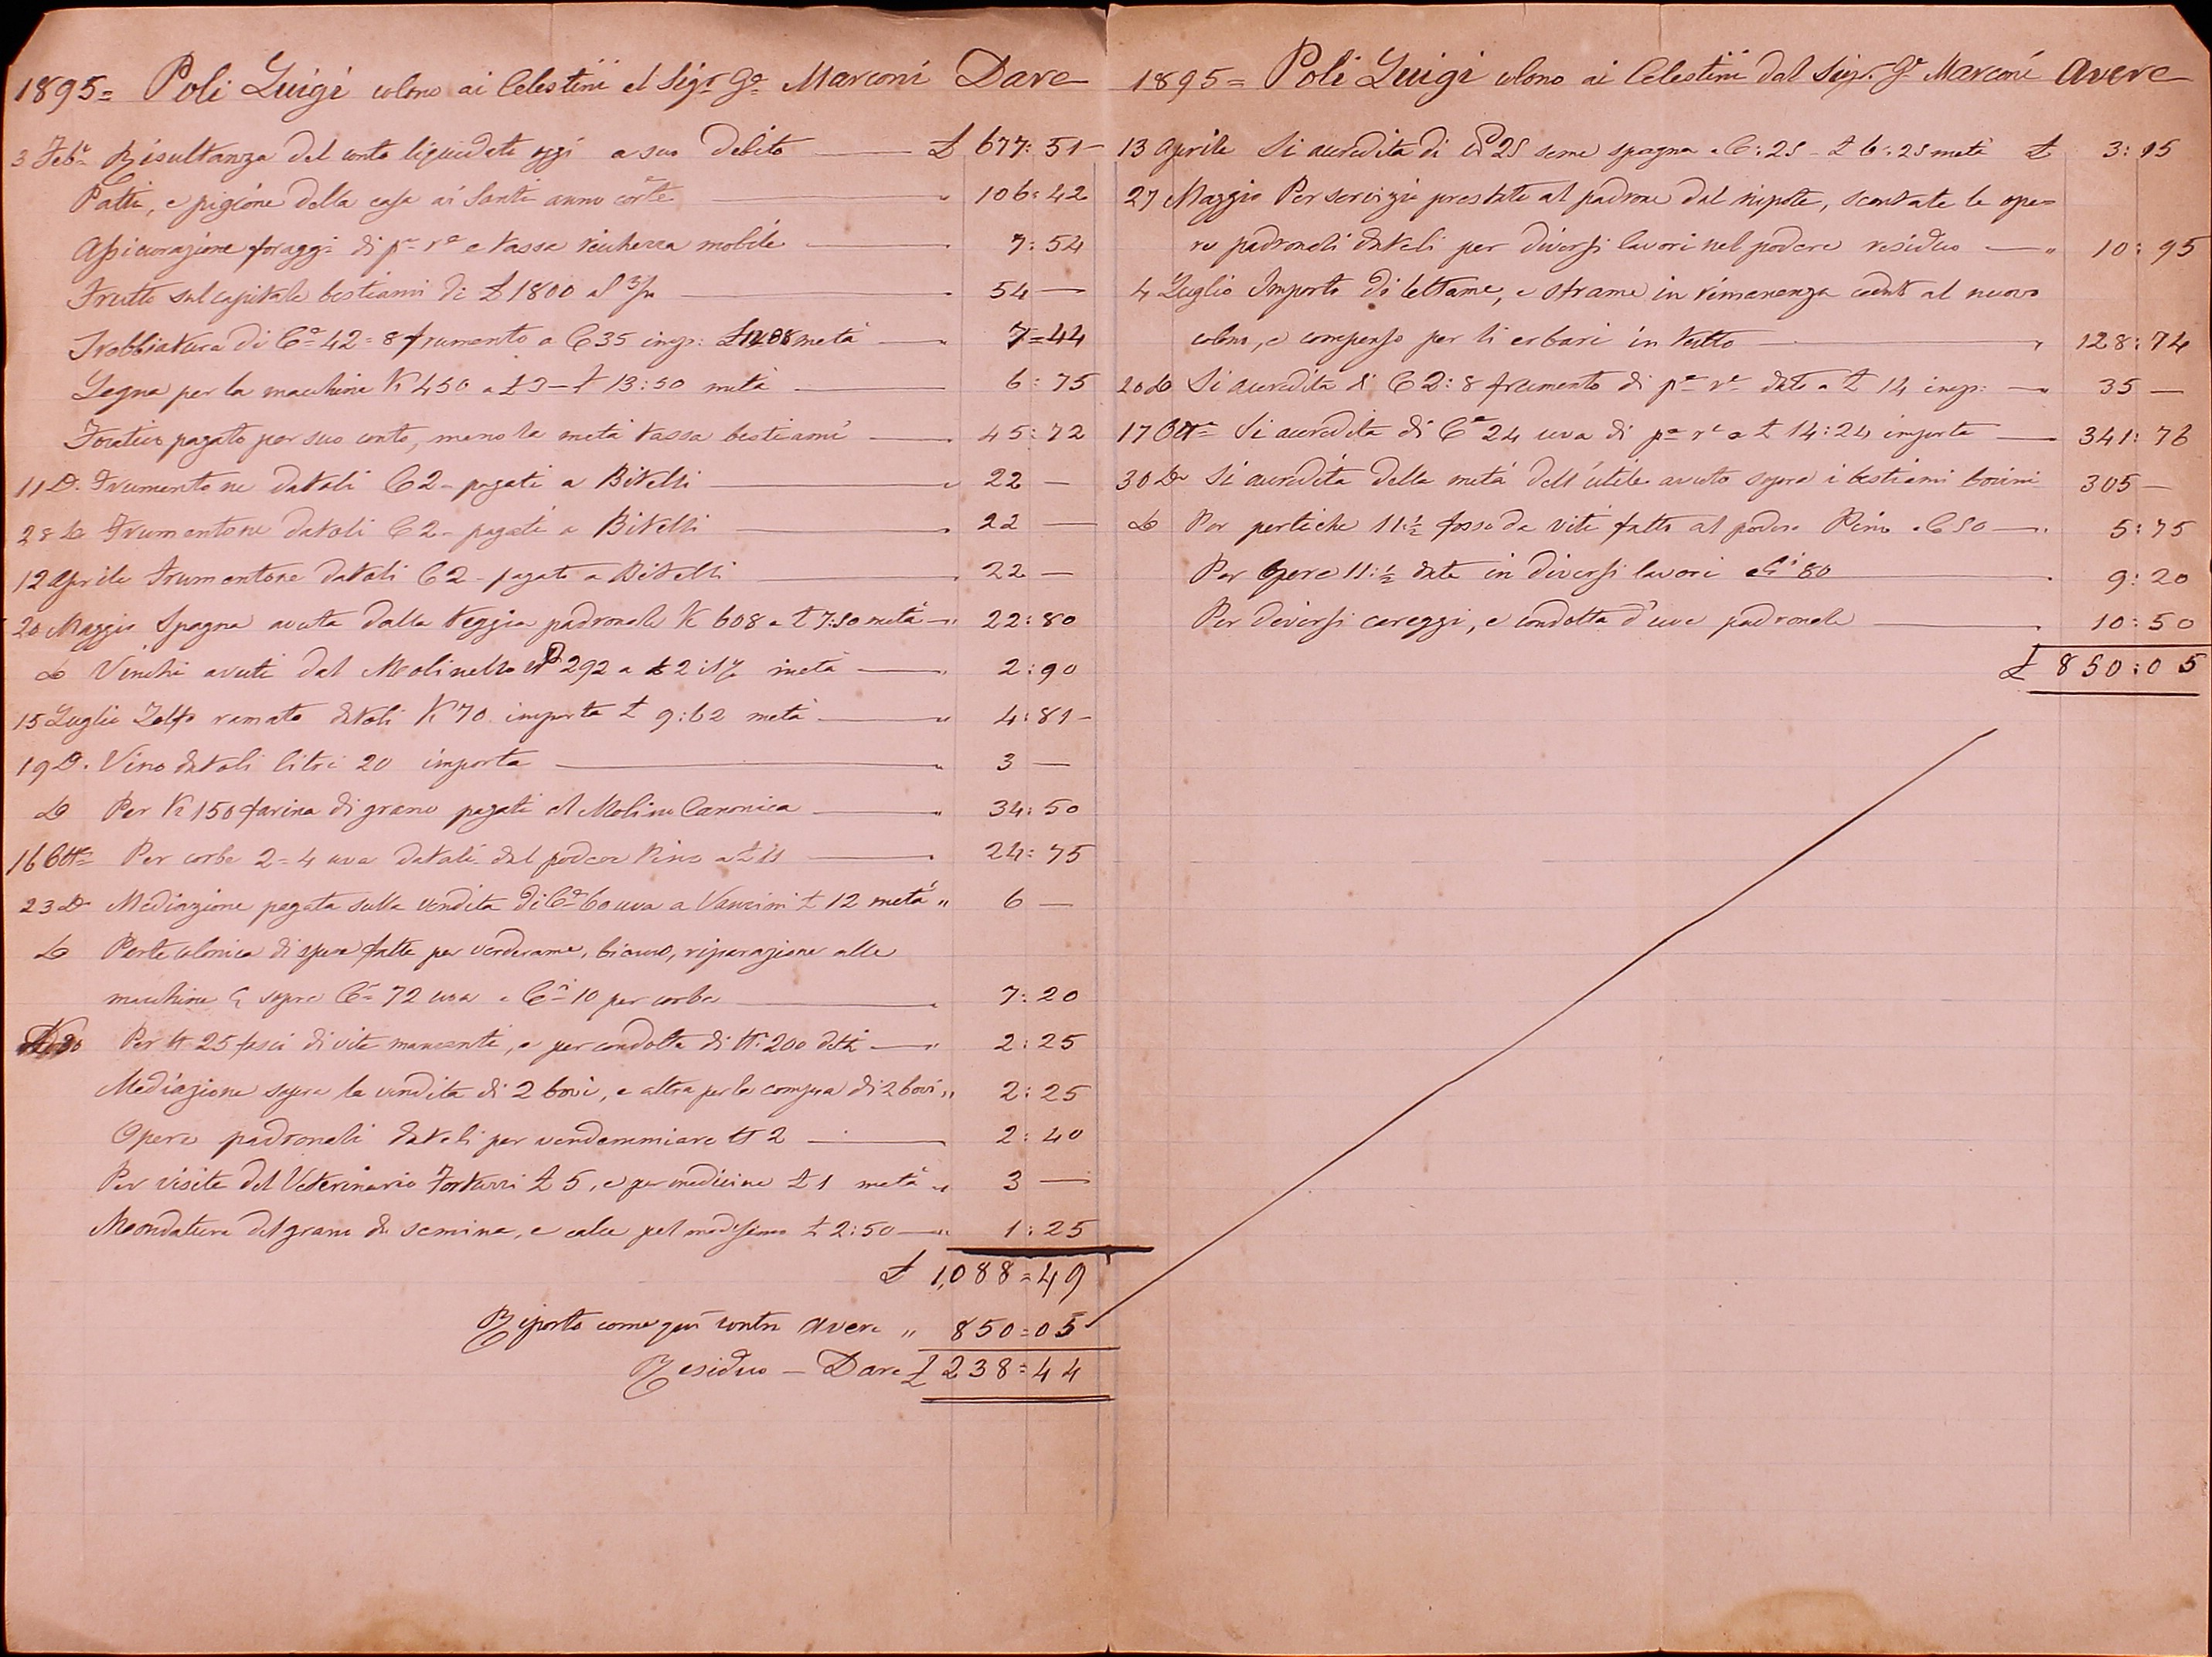 1895= Poli Luigi colono ai Celestini al Sigr. Ge. Marconi Dare
3 Feb. Risultanza del conto liquidato oggi a suo debito £ 677:51
Patti, e pigione della casa ai Santi anno corte. " 106:42
Assicurazione foraggi di pe. re. e tassa ricchezza mobile 7:54
Frutto sul capitale bestiami di £ 1800 al 3 54 —
Trebbiatura di Ce. 42=8 frumento a C 35 imp: metà " 7=44
Legna per la macchina K 450 a £ 3 - £ 13:50 metà " 6:75
pagato per suo conto, meno la metà tassa bestiami 45:72
11 Do. Frumentone datoli C 2 - pagati a Bitelli " 22 —
28 Do Frumentone datoli C 2 - pagati a Bitelli 22 —
12 Aprile Frumentone datoli C 2 - pagati a Bitelli 22 —
20 Maggio Spagna avuta dalla padronale K 608 a £ 7:50 metà " 22:80
Do Vinchi avuti dal Molinello 292 a £ 2: metà " 2:90
15 Luglio Zolfo ramato datoli K 70 importa £ 9:62 metà " 4:81
19 Do. Vino datoli litri 20 importa " 3 —
Do Per K 150 farina di grano pagati al Molino Canonica " 34:50
16 Otte. Per corbe 2=4 uva datali dal podere Pino a £ 11 " 24:75
23 Do Mediazione pagata sulla vendita di Ce. 60 uva a £ 12 metà " 6 —
Do Parte colonica di spese fatte per verderame, bianco, riparazione alle
macchine sopra Ce. 72 uva a Ci. 10 per corba " 7:20
30 Per N 25 fasci di vite mancanti, e per condotta di N. 200 detti " 2:25
Mediazione sopra la vendita di 2 bovi, e altra per la compra di 2 bovi " 2:25
Opere padronali dateli per vendemmiare N 2 2:40
Per visite del Veterinario £ 5, e per medicine £ 1 metà " 3 —
Mondatura del grano da semina, e calce pel medesimo £ 2:50 " 1:25
£ 1,088=49
Riporto come qui contro avere " 850=05
Residuo — Dare £ 238=44
1895= Poli Luigi colono ai Celestini dal Sigr. Ge. Marconi Avere
13 Aprile Si accredita di 25 seme spagna a C:25 - £ 6:25 metà £ 3:15
27 Maggio Per servizi prestati al padrone dal nipote, scontate le ope=
re padronali dateli per diversi lavori nel podere residuo " 10:95
4 Luglio Importo di lettame, e strame in rimanenza ceduto al nuovo
colono, e compenso per li erbari in tutto " 128:74
20 Do Si accredita di C 2:8 frumento di pe. re. dato a £ 14 imp: " 35 —
17 Otte. Si accredita di Ce. 24 uva di pe. re. a £ 14:24 importa 341:76
30 Do Si accredita della metà dell'utile avuto sopra i bestiami bovini 305 —
Do Per pertiche 11:½ fossa da viti fatta al podere Pino a C 50 " 5:75
Per Opere 11:½ date in diversi lavori a Ci. 80 " 9:20
Per diversi careggi, e condotta d'uva padronale " 10:50
£ 850:05